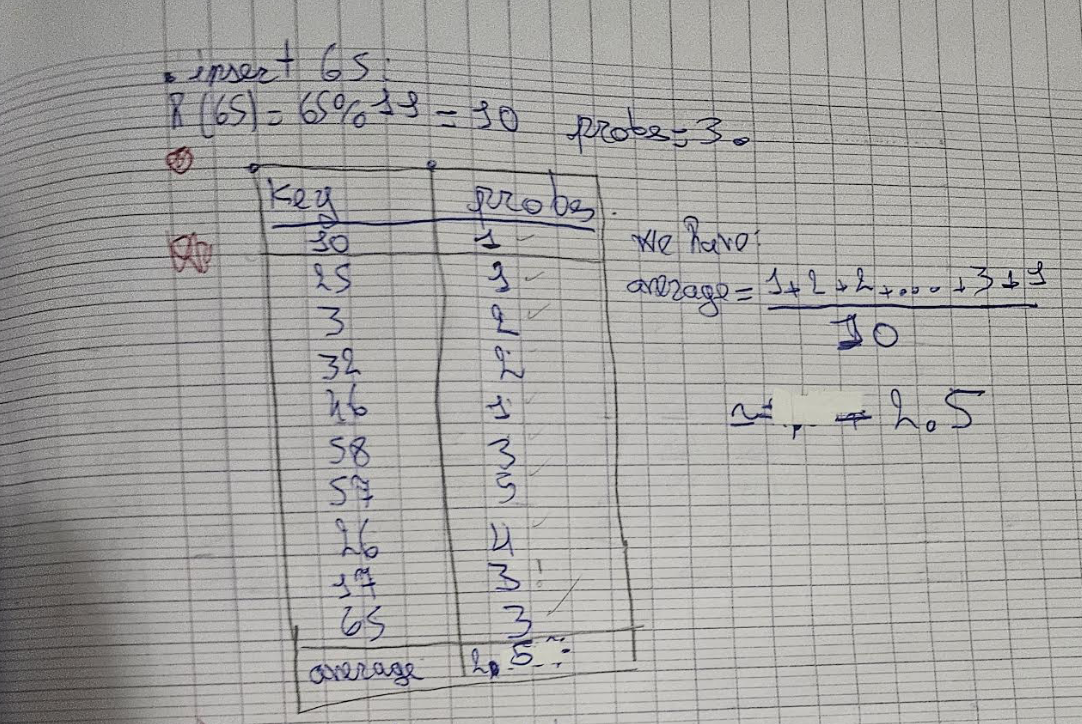 . insert 65:
h(65) = 65%11 = 10 probs = 3.
Key probs
10 1
25 1
3 2
32 2
46 1
58 3
57 5
26 4
17 3
65 3
average 2,5
We have:
average = 1+2+2+....+3+1
10
≃ 2,5